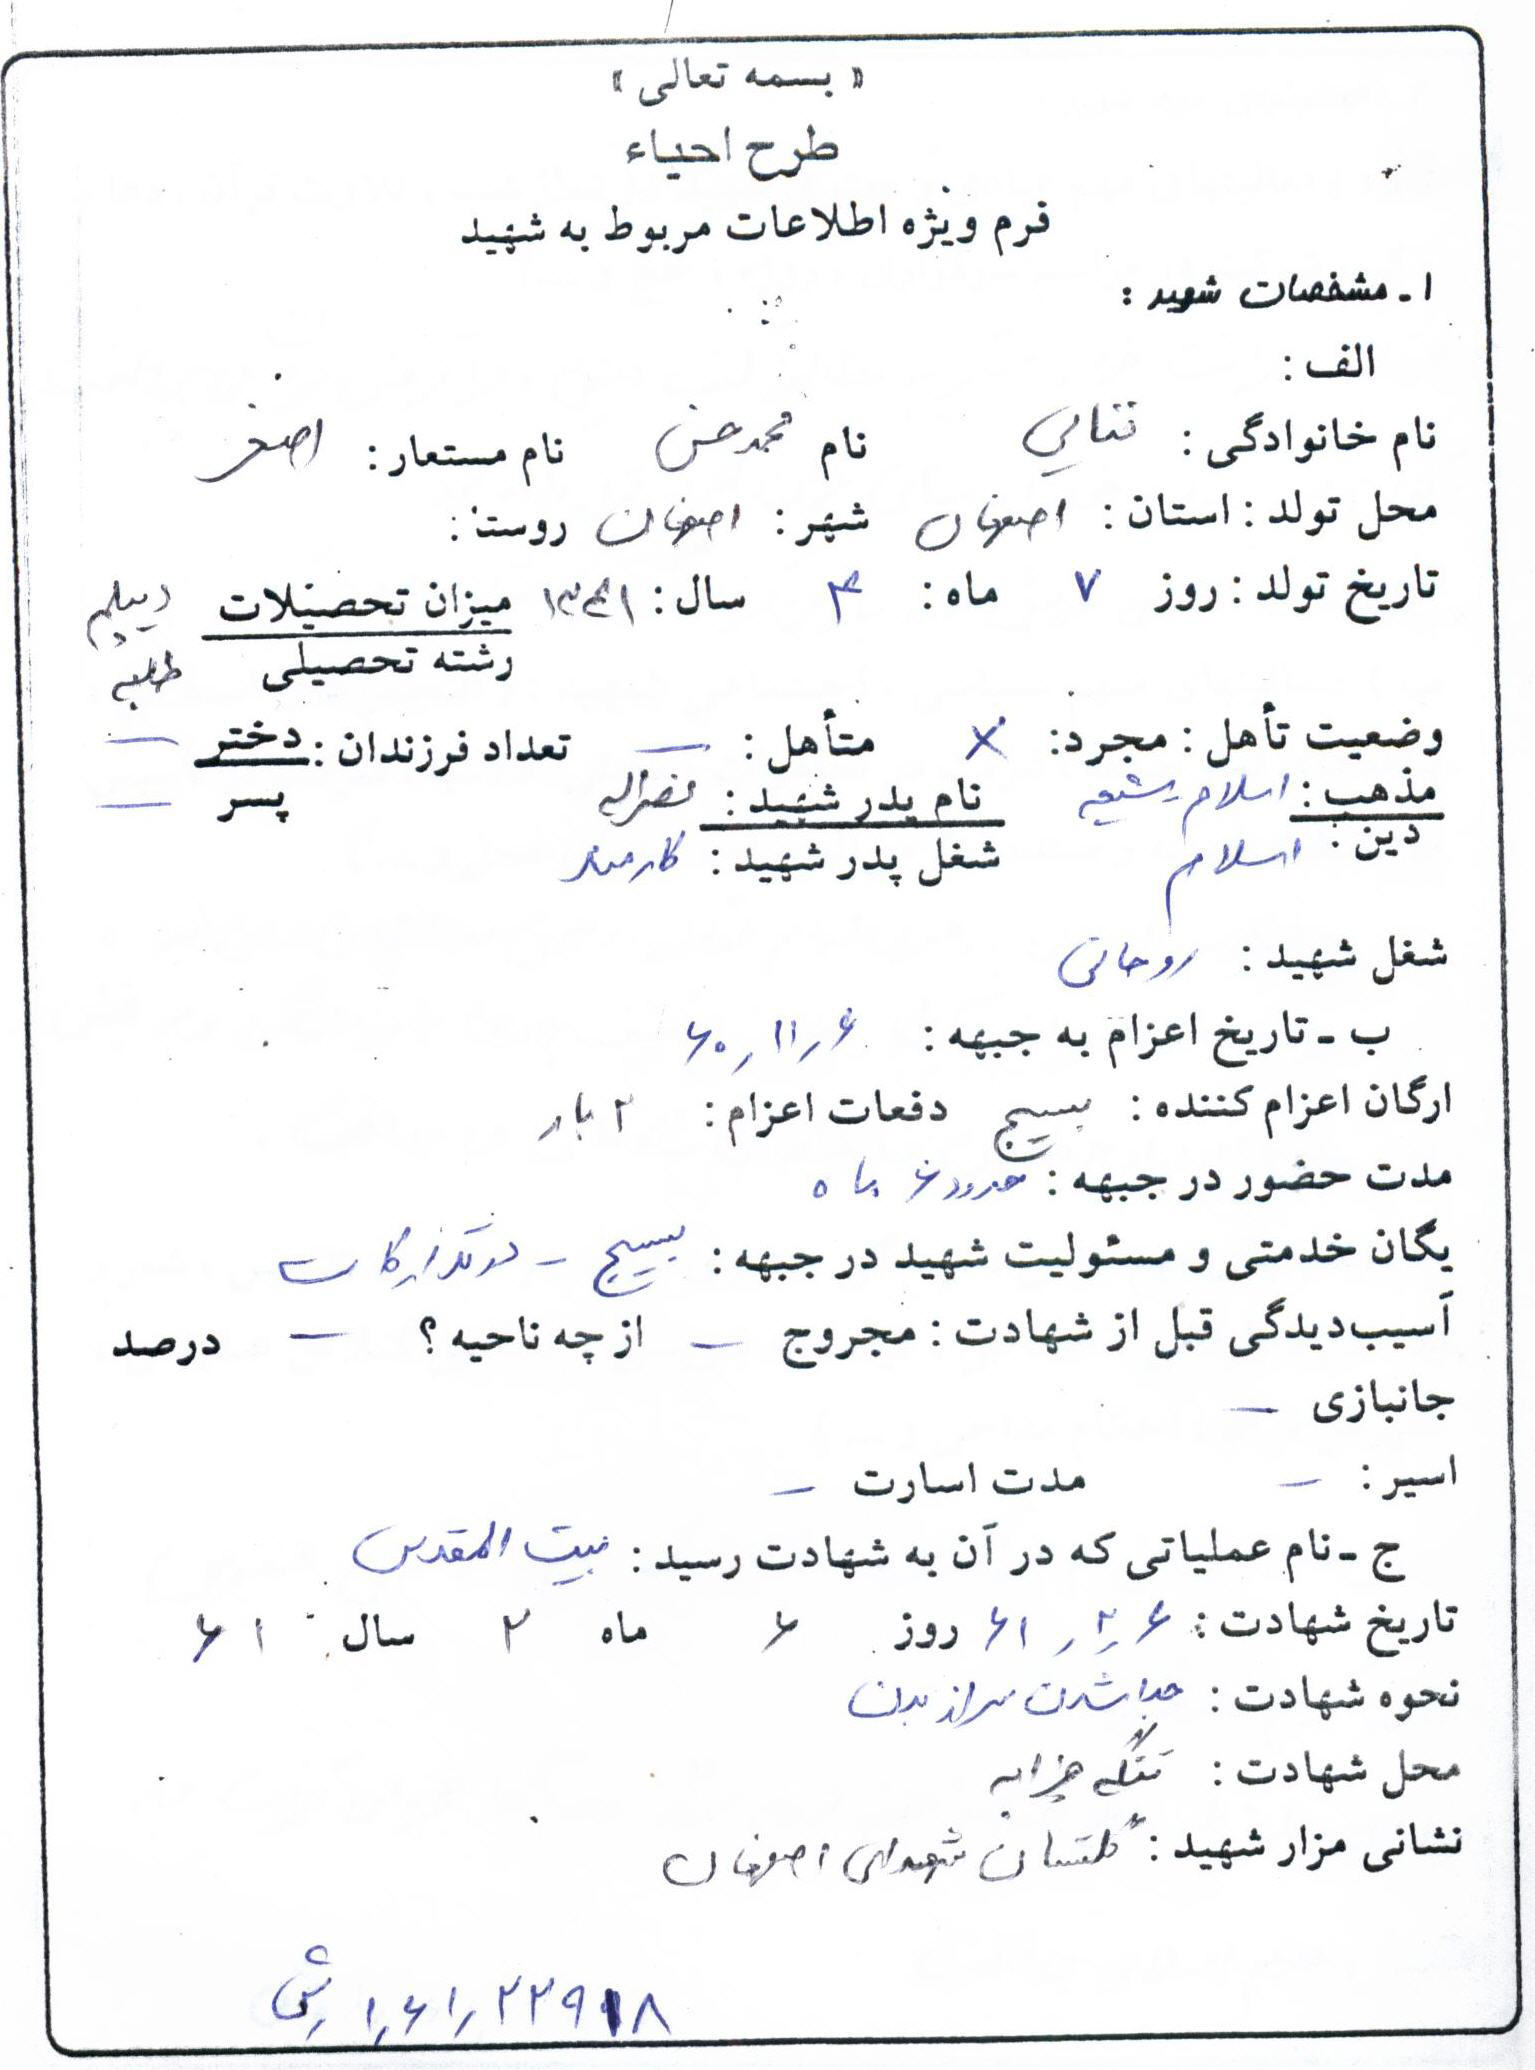 « بسمه تعالی »
طرح احیاء
فرم ویژه اطلاعات مربوط به شهید
۱ ـ مشخصات شهید :
الف :
نام خانوادگی : نام محمدحسن نام مستعار : اصغر
محل تولد : استان : اصفهان شهر : اصفهان روستا :
تاریخ تولد : روز ۷ ماه : ۴ سال : ۱۳۴۱ میزان تحصیلات دیپلم
رشته تحصیلی طلبه
وضعیت تأهل : مجرد : × متأهل : — تعداد فرزندان : دختر —
پسر —
مذهب : اسلام ـ شیعه نام پدر شهید : نصراله
دین : اسلام شغل پدر شهید : کارمند
شغل شهید : روحانی
ب ـ تاریخ اعزام به جبهه : ۶۰٫۱۱٫۶
ارگان اعزام کننده : بسیج دفعات اعزام : ۲ بار
مدت حضور در جبهه : حدود ۶ ماه
یگان خدمتی و مسئولیت شهید در جبهه : بسیج –
آسیب‌دیدگی قبل از شهادت : مجروح — از چه ناحیه ؟ — درصد
جانبازی —
اسیر : – مدت اسارت –
ج ـ نام عملیاتی که در آن به شهادت رسید : بیت المقدس
تاریخ شهادت : ۶۱٫۲٫۶ روز ۶ ماه ۲ سال ۶۱
نحوه شهادت : جدا شدن سر از بدن
محل شهادت : تنگه چزابه
نشانی مزار شهید : گلستان شهدای اصفهان
۱٫۶۱٫۲۲۹۱۸ ش